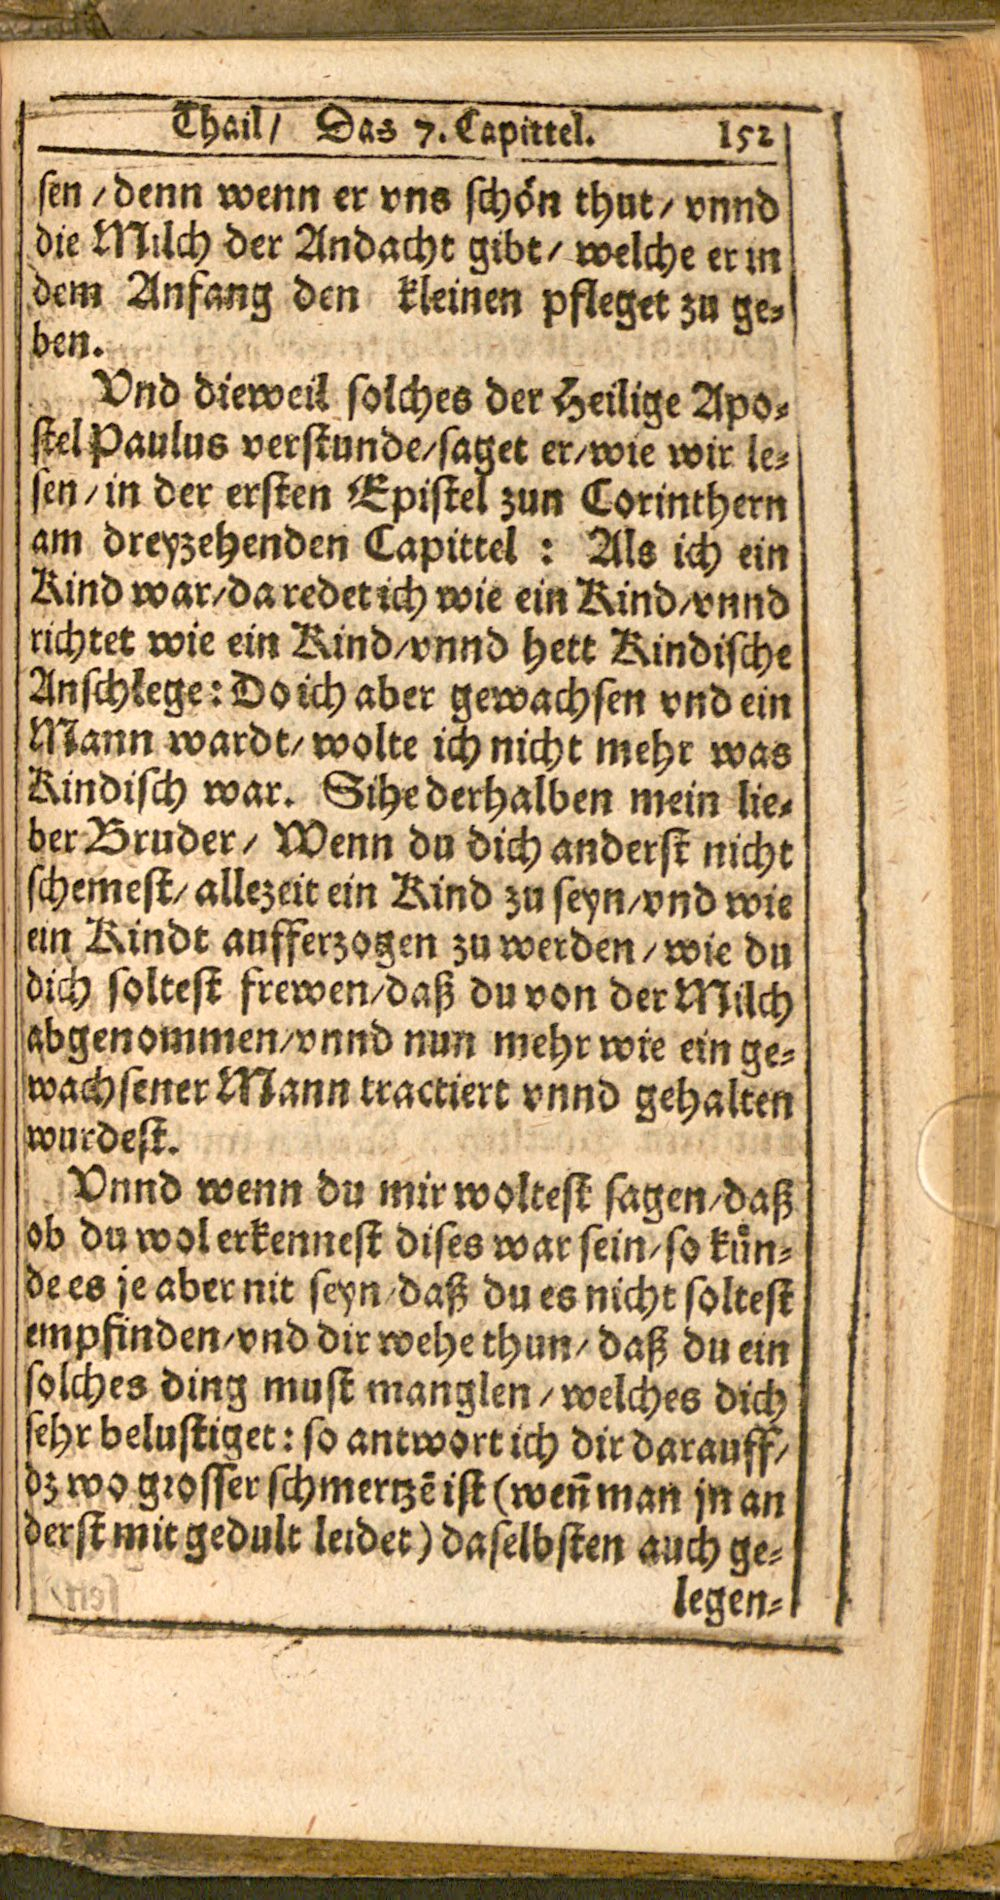 Thail/ Das 7. Capittel. 152
sen/denn wenn er vns schön thut/vnnd
die Milch der Andacht gibt/welche er in
dem Anfang den kleinen pfleget zu ge-
ben.
Vnd dieweil solches der Heilige Apo-
stel Paulus verstunde/saget er/wie wir le-
sen/in der ersten Epistel zun Corinthern
am dreyzehenden Capittel: Als ich ein
Kind war/da redet ich wie ein Kind/vnnd
richtet wie ein Kind/vnnd hett Kindische
Anschlege: Do ich aber gewachsen vnd ein
Mann wardt/wolte ich nicht mehr was
Kindisch war. Sihe derhalben mein lie-
ber Bruder/ Wenn du dich anderst nicht
schemest/allezeit ein Kind zu seyn/vnd wie
ein Kindt aufferzogen zu werden/wie du
dich soltest frewen/daß du von der Milch
abgenommen/vnnd nun mehr wie ein ge-
wachsener Mann tractiert vnnd gehalten
wurdest.
Vnnd wenn du mir woltest sagen/daß
ob du wol erkennest dises war sein/so kuͤn-
de es je aber nit seyn/daß du es nicht soltest
empfinden/vnd dir wehe thun/daß du ein
solches ding must manglen/welches dich
sehr belustiget: so antwort ich dir darauff/
dz wo grosser schmertzē ist (weñ man jn an
derst mit gedult leidet) daselbsten auch ge-
legen-